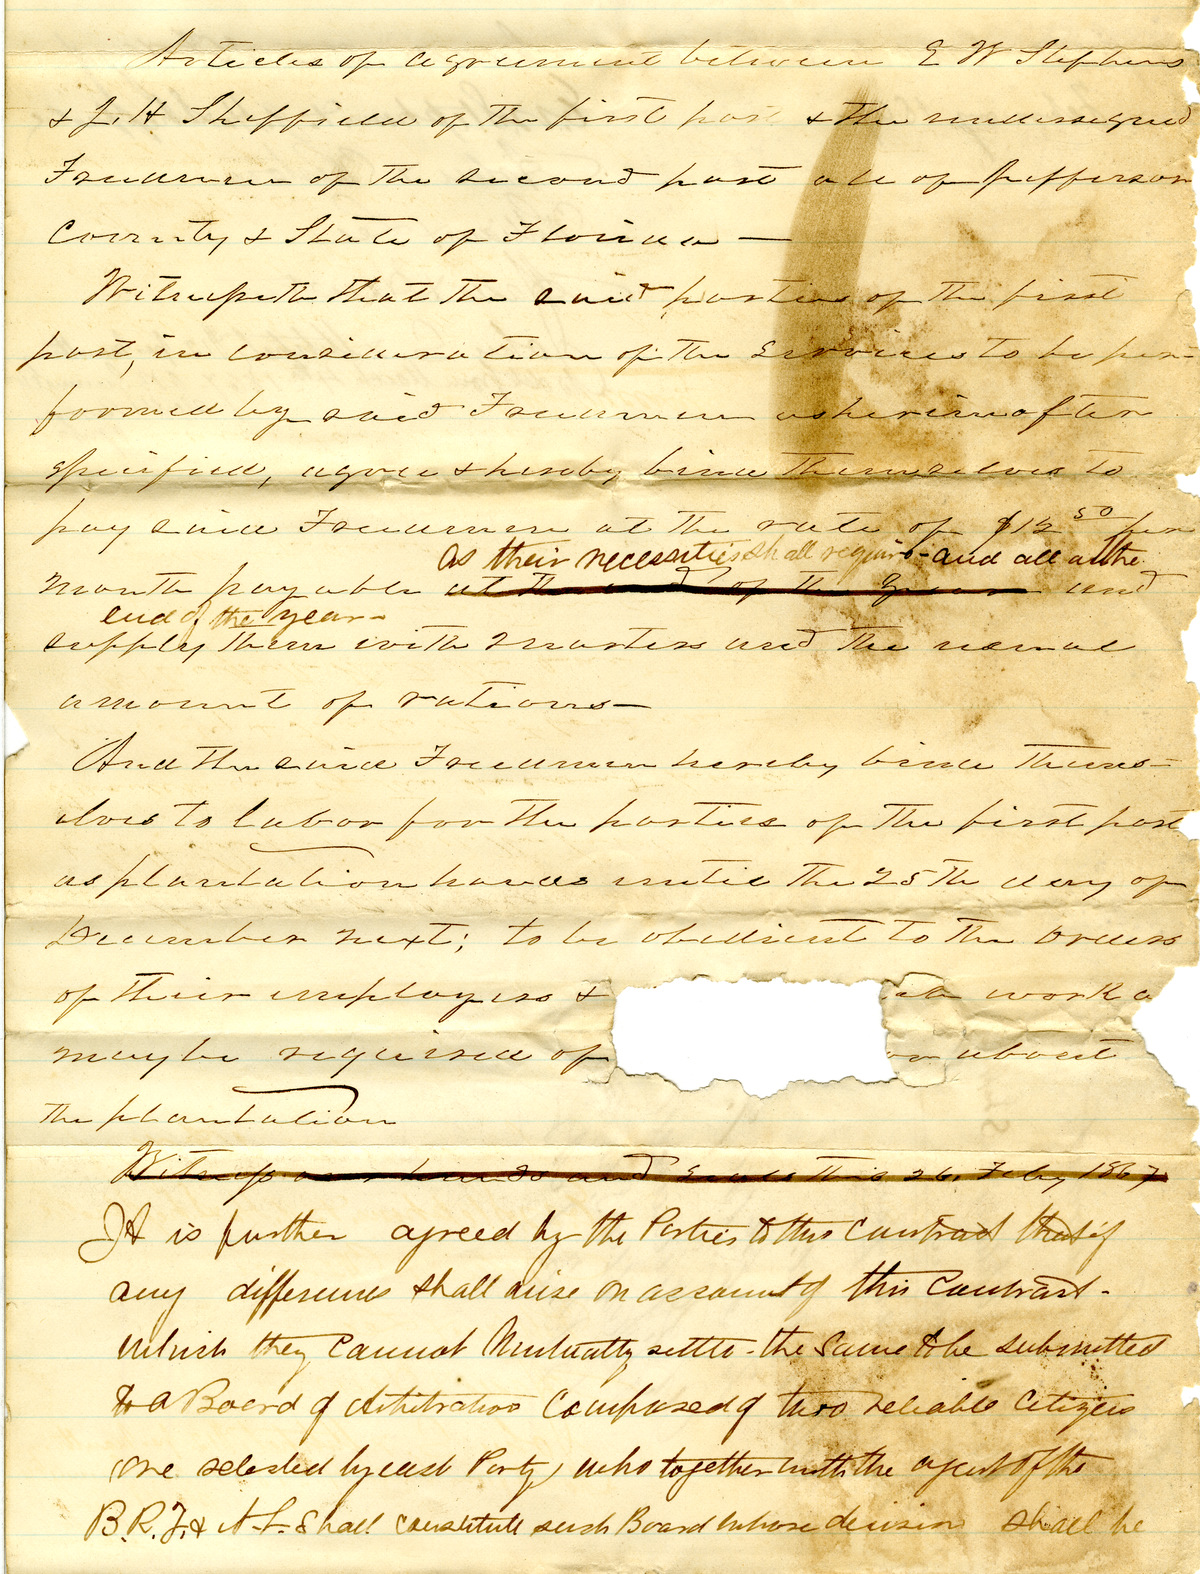 Articles of agreement between E W Stephens
& J. H Sheffield of the first part & the undersigned
Freedmen of the second part all of Jefferson
County & State of Florida —
Witnesseth that the said parties of the first
part, in consideration of the services to be per-
formed by said Freedmen as hereinafter
specified, agree & hereby bind themselves to
pay said Freedmen at the rate of $12 50 per
as their necessities shall require - and all at the
month payable at the end of the year and
end of the year -
supply them with quarters and the usual
amount of rations —
And the said Freedmen hereby bind thems-
elves to labor for the parties of the first part
as plantation hands until the 25th day of
December next; to be obedient to the orders
of their employers & work a
may be required of about
the plantation
Witness our hands and seals this 26. Feby 1867
It is further agreed by the Parties to this Contract that if
any differences shall arise on account of this Contract -
which they cannot Mutually settle - the same to be submitted
to a Board of Arbitration Composed of two reliable Citizens
one selected by each Party, who together with the agent of the
B. R. F. & A. L. Shall constitute such Board whose decision shall be